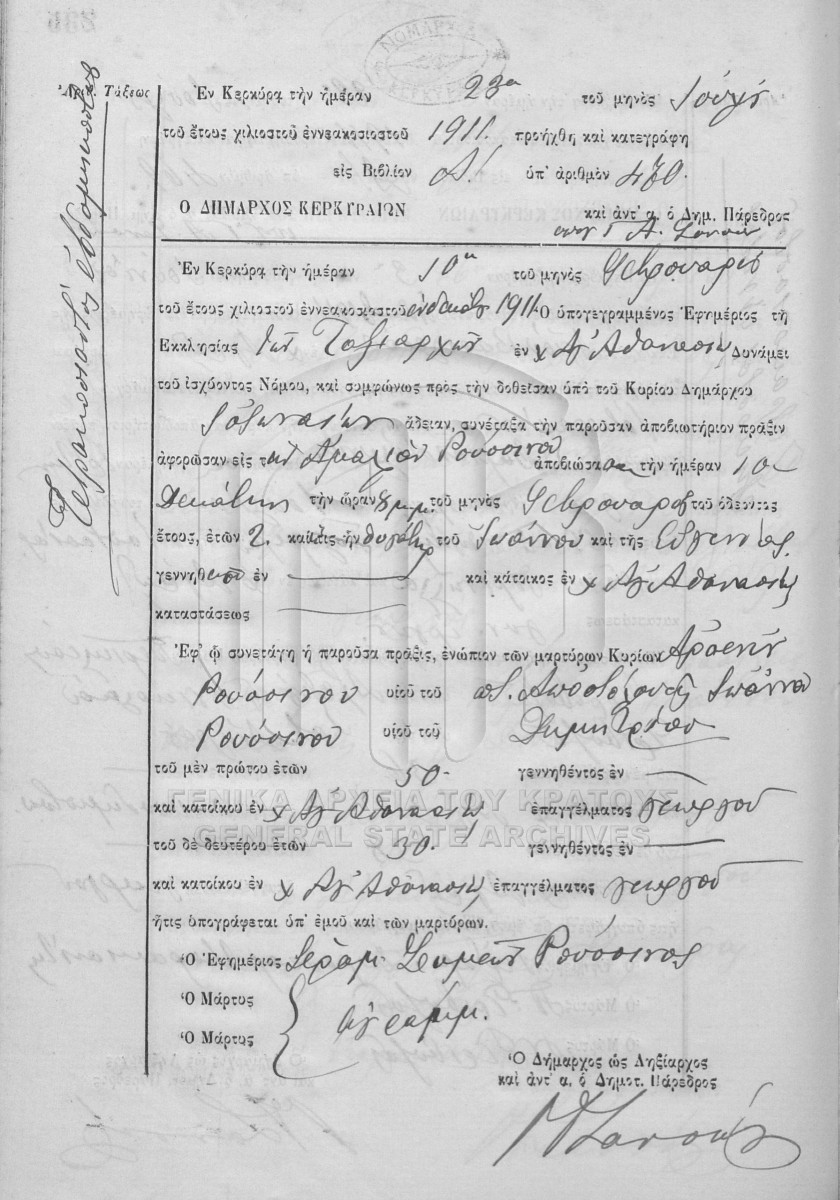 ΝΟΜΑΡΧΙΑ
ΚΕΡΚΥΡΑΣ
Ἀριθ. Τάξεως
Τετρακοσιοστή ἑβδομηκοστή
Ἐν Κερκύρᾳ τὴν ἡμέραν 28η τοῦ μηνὸς
τοῦ ἔτους χιλιοστοῦ ἐννεακοσιοστοῦ 1911. προήχθη καὶ κατεγράφη
εἰς Βιβλίον Α! ὑπ' ἀριθμὸν 470.
Ο ΔΗΜΑΡΧΟΣ ΚΕΡΚΥΡΑΙΩΝ καὶ ἀντ' α. ὁ Δημ. Πάρεδρος
Ἐν Κερκύρᾳ τὴν ἡμέραν 10η τοῦ μηνὸς Φεβρουαρίου
τοῦ ἔτους χιλιοστοῦ ἐννεακοσιοστοῦ ἑνδεκάτου 1911 Ὁ ὑπογεγραμμένος Ἐφημέριος τῆς
Ἐκκλησίας τῶν Ταξιαρχῶν ἐν χ Ἁγ Ἀθανασίῳ Δυνάμει
τοῦ ἰσχύοντος Νόμου, καὶ συμφώνως πρὸς τὴν δοθεῖσαν ὑπὸ τοῦ Κυρίου Δημάρχου
ἄδειαν, συνέταξα τὴν παροῦσαν ἀποβιωτήριον πρᾶξιν
ἀφορῶσαν εἰς τὴν Ἀμαλίαν Ρούσσινου ἀποβιώσασαν τὴν ἡμέραν 10
Δεκάτην τὴν ὥραν 8 μ.μ. τοῦ μηνὸς Φεβρουαρίου τοῦ ὁδεύοντος
ἔτους, ἐτῶν 2. καὶ ἥτις ἦν θυγάτηρ τοῦ Ἰωάννου καὶ τῆς Εὐγενίας.
γεννηθεῖσα ἐν καὶ κάτοικος ἐν χ Ἁγ Ἀθανασίῳ
καταστάσεως
Ἐφ' ᾧ συνετάγη ἡ παροῦσα πρᾶξις, ἐνώπιον τῶν μαρτύρων Κυρίων Ἀρσένη
Ρούσσινου υἱοῦ τοῦ Ἀποστόλου Ἰωάννου
Ρούσσινου υἱοῦ τοῦ Δημητρίου
τοῦ μὲν πρώτου ἐτῶν 50. γεννηθέντος ἐν
καὶ κατοίκου ἐν χ Ἁγ Ἀθανασίῳ ἐπαγγέλματος γεωργοῦ
ΓΕΝΙΚΑ ΑΡΧΕΙΑ ΤΟΥ ΚΡΑΤΟΥΣ
GENERAL STATE ARCHIVES
τοῦ δὲ δευτέρου ἐτῶν 30. γεννηθέντος ἐν
καὶ κατοίκου ἐν χ Ἁγ Ἀθανασίῳ ἐπαγγέλματος γεωργοῦ
ἥτις ὑπογράφεται ὑπ' ἐμοῦ καὶ τῶν μαρτύρων.
Ὁ Ἐφημέριος Ἱερομ. Συμεὼν Ρούσσινος
Ὁ Μάρτυς
ἀγράμμ.
Ὁ Μάρτυς
Ὁ Δήμαρχος ὡς Ληξίαρχος
καὶ ἀντ' α. ὁ Δημοτ. Πάρεδρος